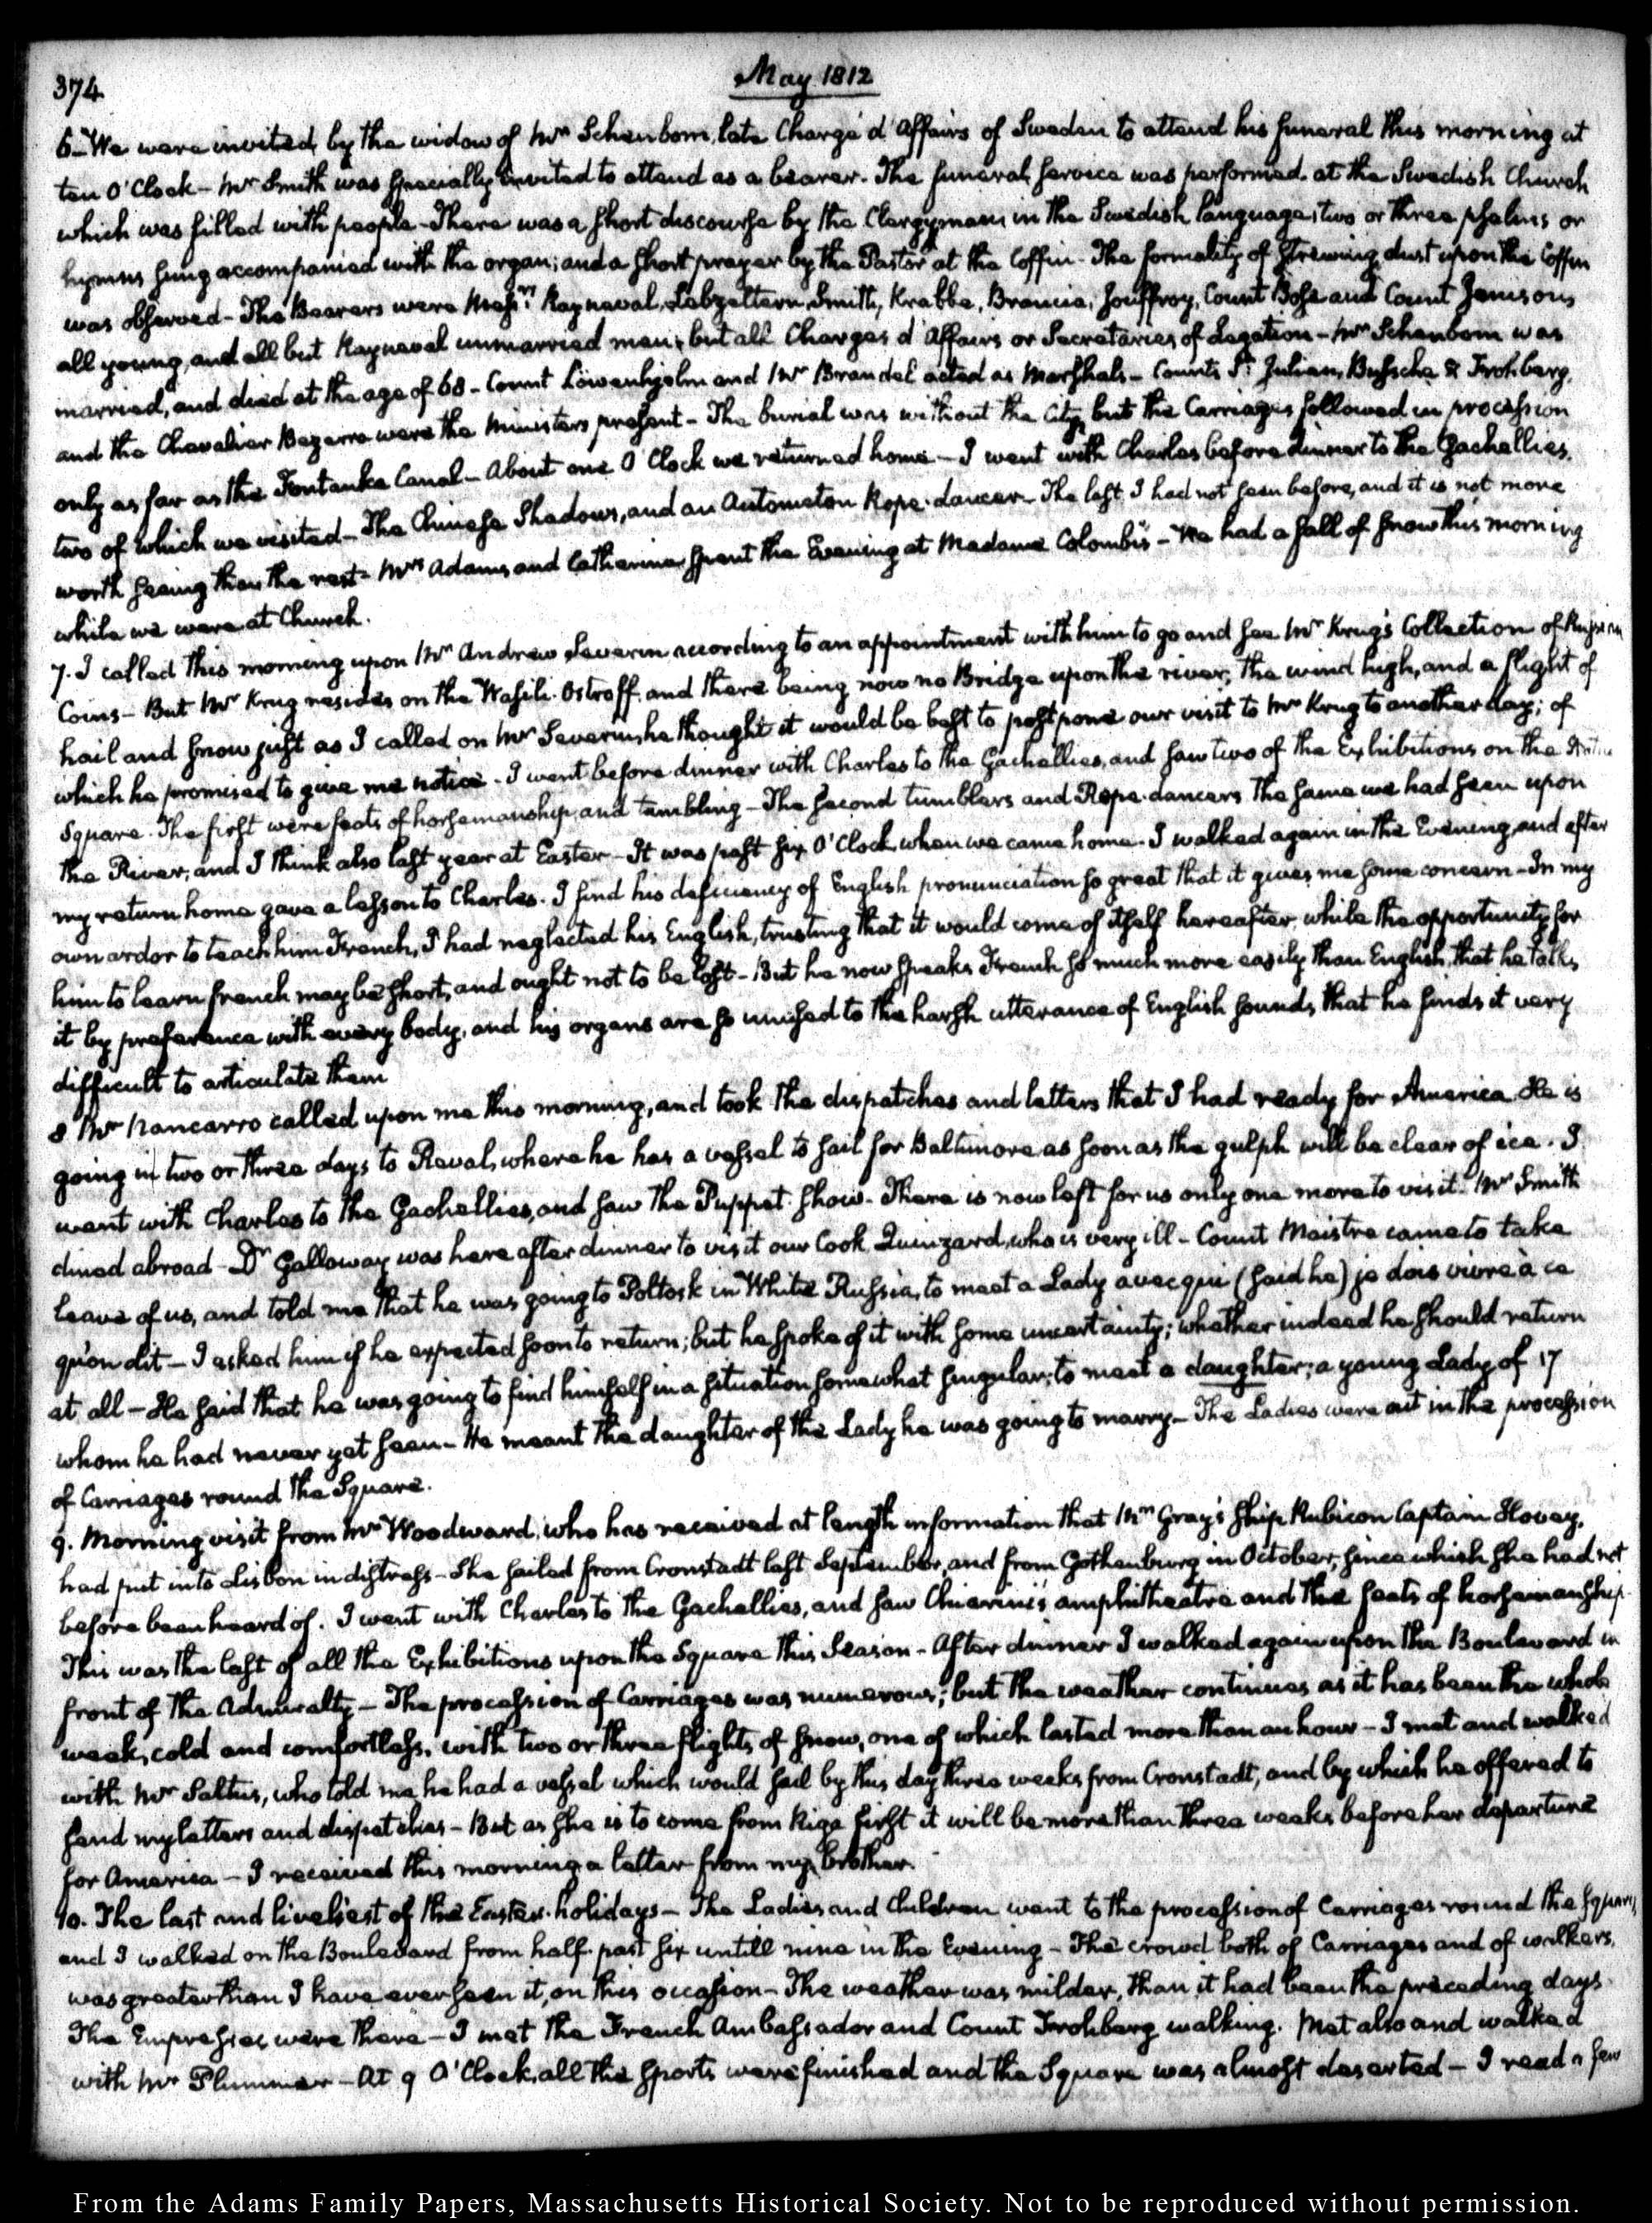 374
May 1812
6. We were invited by the widow of Mr. Schenbom, late Chargé d'Affairs of Sweden to attend his funeral this morning at
ten O'Clock – Mr Smith was specially invited to attend as a bearer. The funeral service was performed at the Swedish Church
which was filled with people – There was a short discourse by the Clergyman in the Swedish language, two or three psalms or
hymns sung accompanied with the organ; and a short prayer by the Pastor at the Coffin – The formality of strewing dust upon the Coffin
was observed – The Bearers were Messrs. Rayneval, Lebzeltern, Smith, Krabbe, Brancia, Jouffroy, Count Bose and Count Jenisons
all young, and all but Rayneval unmarried men; but all Chargés d'Affairs or Secretaries of Legation – Mr Schenbom was
married, and died at the age of 68 – Count Löwenhjelm and Mr Brandel acted as Marshals – Counts St. Julien, Bussche & Frohberg,
and the Chevalier Bezerra were the Ministers present – The burial was without the City, but the Carriages followed in procession
only as far as the Fontanka Canal – About one O'Clock we returned home – I went with Charles before dinner to the Gachellies,
two of which we visited – The Chinese Shadows, and an Automaton Rope-dancer – The last I had not seen before, and it is not more
worth seeing than the rest – Mrs Adams and Catherine spent the Evening at Madame Colombi's – We had a fall of snow this morning
while we were at Church.
7. I called this morning upon Mr Andrew Severin according to an appointment with him to go and see Mr Krug's Collection of Russian
Coins – But Mr Krug resides on the Wasili-Ostroff, and there being now no Bridge upon the river, the wind high, and a flight of
hail and snow just as I called on Mr Severin, he thought it would be best to postpone our visit to Mr Krug to another day; of
which he promised to give me notice. I went before dinner with Charles to the Gachellies, and saw two of the Exhibitions on the
Square. The first were feats of horsemanship and tumbling – The second tumblers and Rope-dancers the same we had seen upon
the River; and I think also last year at Easter – It was past six O'Clock when we came home. I walked again in the Evening, and after
my return home gave a lesson to Charles. I find his deficiency of English pronunciation so great that it gives me some concern – In my
own ardor to teach him French, I had neglected his English, trusting that it would come of itself hereafter, while the opportunity for
him to learn french may be short, and ought not to be lost – But he now speaks French so much more easily than English, that he talks
it by preference with every body, and his organs are so unused to the harsh utterance of English sounds, that he finds it very
difficult to articulate them
8 Mr Nancarro called upon me this morning, and took the dispatches and letters that I had ready for America. He is
going in two or three days to Reval, where he has a vessel to sail for Baltimore as soon as the gulph will be clear of ice. I
went with Charles to the Gachellies, and saw the Puppet-Show. There is now left for us only one more to visit. Mr Smith
dined abroad – Dr Galloway was here after dinner to visit our Cook Quinzard, who is very ill – Count Maistre came to take
leave of us, and told me that he was going to Poltosk in White Russia, to meet a Lady avec qui (said he) je dois vivre à ce
qu'on dit – I asked him if he expected soon to return; but he spoke of it with some uncertainty; whether indeed he should return
at all – He said that he was going to find himself in a situation somewhat singular; to meet a daughter; a young Lady of 17
whom he had never yet seen – He meant the daughter of the Lady he was going to marry – The Ladies were out in the procession
of Carriages round the Square.
9. Morning visit from Mr Woodward, who has received at length information that Mr Gray's ship Rubicon Captain Hovey,
had put into Lisbon in distress – She sailed from Cronstadt last September, and from Gothenburg in October, since which she had not
before been heard of. I went with Charles to the Gachellies, and saw Chiarini's amphitheatre and the feats of horsemanship.
This was the last of all the Exhibitions upon the Square this Season – After dinner I walked again upon the Boulevard in
front of the Admiralty – The procession of Carriages was numerous; but the weather continues as it has been the whole
week, cold and comfortless, with two or three flights of snow, one of which lasted more than an hour – I met and walked
with Mr Saltus, who told me he had a vessel which would sail by this day three weeks from Cronstadt, and by which he offered to
send my letters and dispatches – But as she is to come from Riga first it will be more than three weeks before her departure
for America – I received this morning a letter from my brother.
10. The last and liveliest of the Easter-holidays – The Ladies and Children went to the procession of Carriages round the Square,
and I walked on the Boulevard from half-past six untill nine in the Evening – The crowd both of Carriages and of walkers,
was greater than I have ever seen it, on this occasion – The weather was milder, than it had been the preceding days.
The Empresses were there – I met the French Ambassador and Count Frohberg walking. Met also and walked
with Mr Plummer – At 9 O'Clock, all the sports were finished and the Square was almost deserted – I read a few
From the Adams Family Papers, Massachusetts Historical Society. Not to be reproduced without permission.